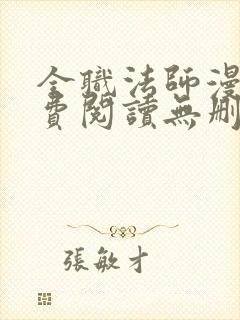 全職法師漫
費閱讀無刪
張敏才